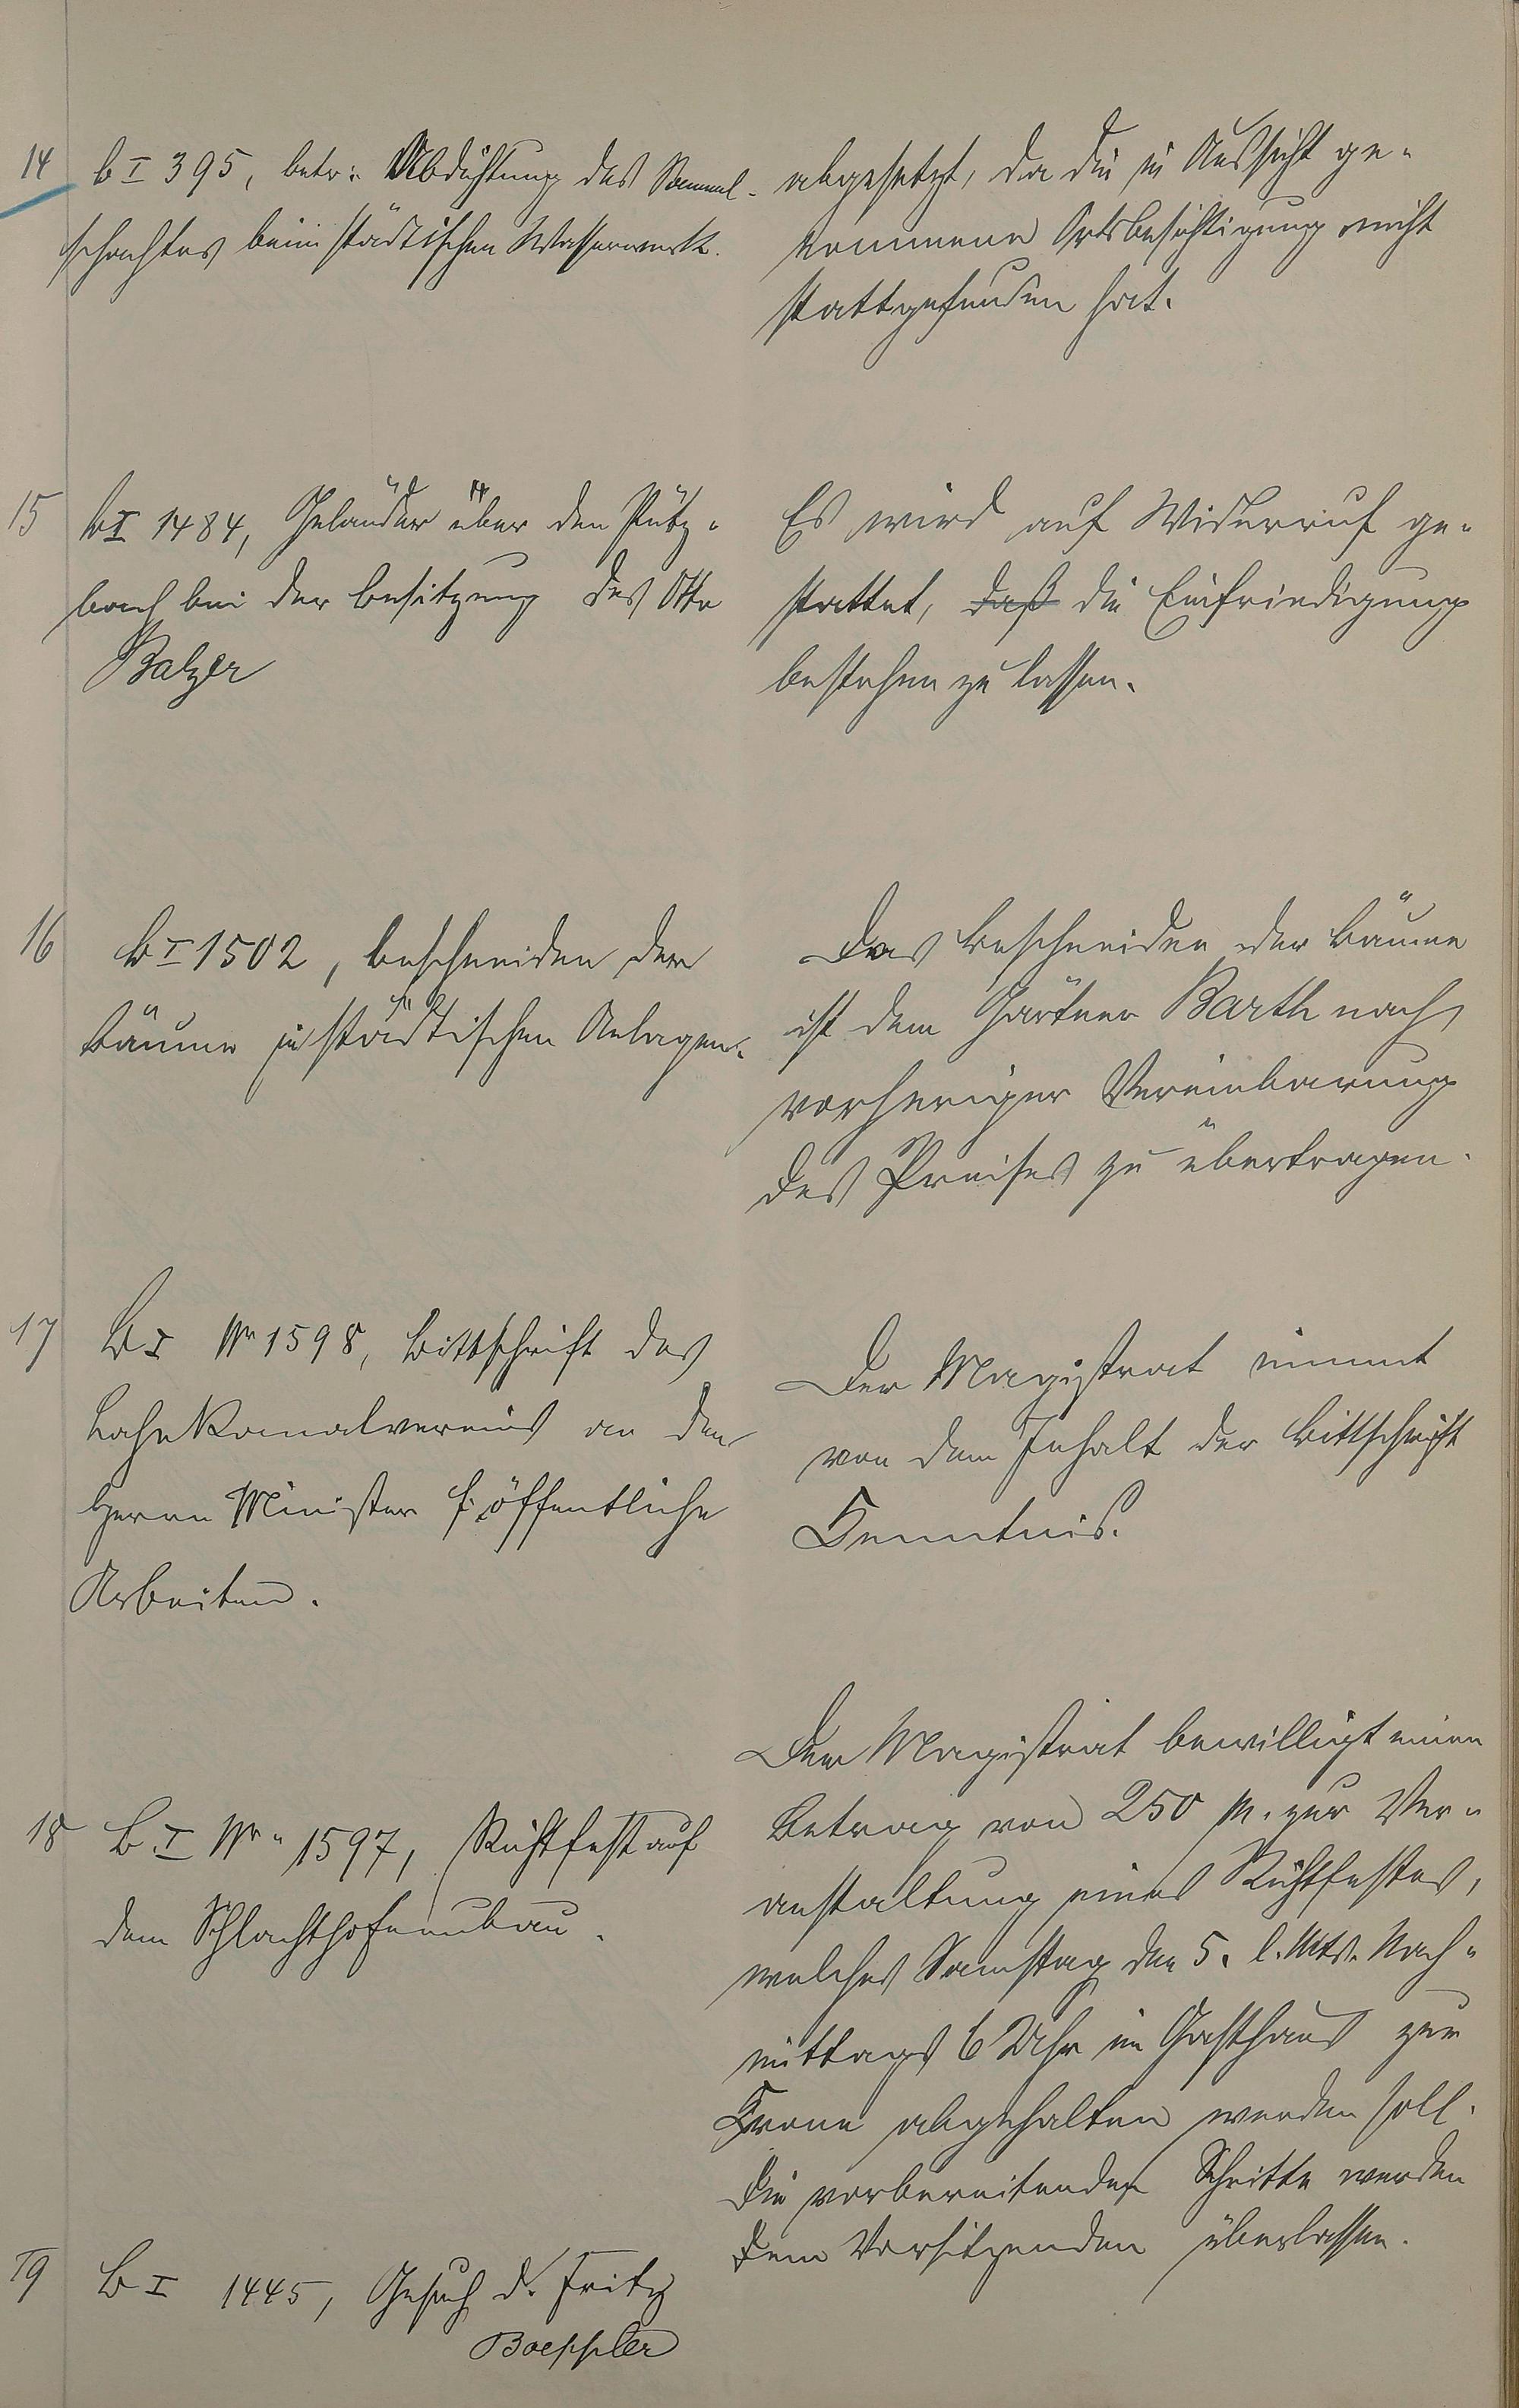 14 b I 395, betr. Abdichtung des Sammel-
schachtes beim städtischen Wasserwerk.
abgesetzt, da die in Aussicht ge-
nommene Ortsbesichtigung nicht
stattgefunden hat.
15 b I 1484, Geländer über den Pütz-
bach bei der Besitzung des Otto
Balzer
Es wird auf Widerruf ge-
stattet, daß die Einfriedigung
bestehen zu lassen.
16 b I 1502, Beschneiden der
Bäume in städtischen Anlagen.
Das Beschneiden der Bäume
ist dem Gärtner Barth nach
vorheriger Vereinbarung
des Preises zu übertragen.
17 B I Nr 1598, Bittschrift des
Lahnkanalvereins an den
Herrn Minister f. öffentliche
Arbeiten.
Der Magistrat nimmt
von dem Inhalt der Bittschrift
Kenntnis.
18 B I Nr. 1597, Richtfest auf
dem Schlachthofneubau.
Der Magistrat bewilligt einen
Betrag von 250 M. zur Ver-
anstaltung eines Richtfestes,
welches Samstag den 5. l. Mts. Nach-
mittags 6 Uhr im Gasthaus zur
Krone abgehalten werden soll.
Die vorbereitenden Schritte werden
dem Vorsitzenden überlassen.
19 B I 1445, Gesuch d. Fritz
Boeppler